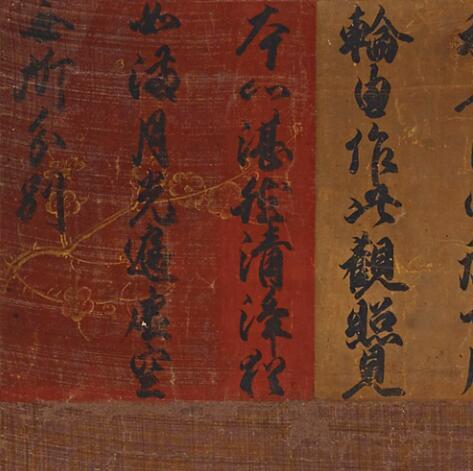 輪由作此觀照見
本心湛然清淨猶
如滿月光遍虛空
無所分別